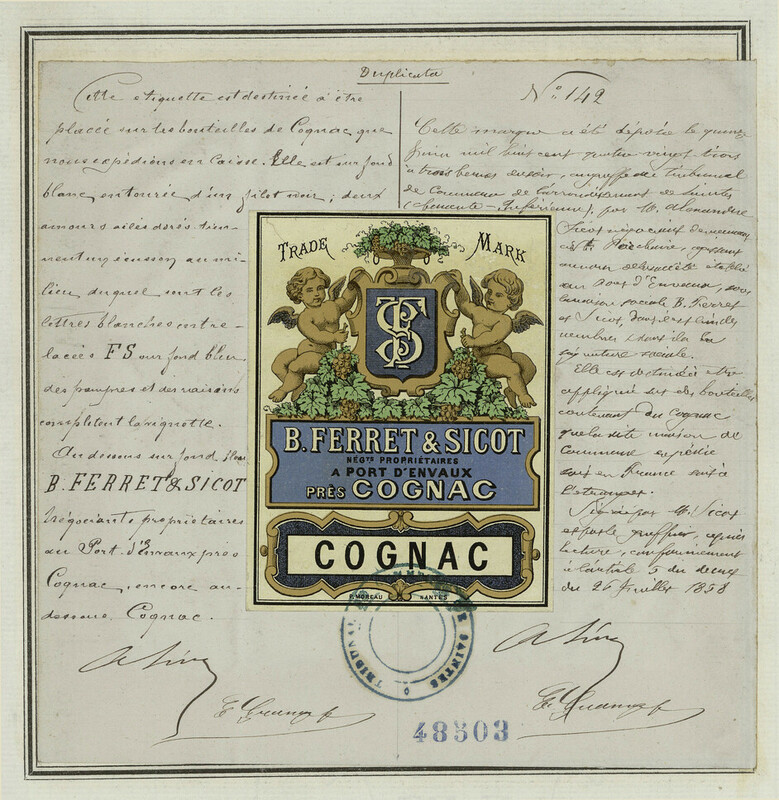 Duplicata
Cette etiquette est destinée à être
placée sur les bouteilles de Cognac que
nous expédions en caisse. Elle est sur fond
blanc entourée d'un filet noir; deux
amours ailés dorés tien-
nent un écusson au mi-
lieu duquel sont les
lettres blanches entre-
lacées FS sur fond bleu,
des pampres et des raisins
complètent la vignette.
Au dessous sur fond bleu
B. FERRET & SICOT
négociants propriétaires
au Port d'Envaux près
Cognac, encore au-
dessous Cognac.
No 142
Cette marque a été déposée le quinze
juin mil huit cent quatre vingt trois
à trois heures du soir, au greffe du tribunal
de Commerce de l'arrondissement de Saintes
(Charente-Inférieure), par M. Alexandre
Sicot négociant demeurant
à St. Porchaire, agissant
au nom de la société établie
au Port d'Envaux, sous
la raison sociale B. Ferret
et Sicot, dont il est l'un des
membres et dont il a la
signature sociale.
Elle est destinée à être
appliquée sur des bouteilles
contenant du Cognac
que la dite maison de
commerce expédie
soit en France soit à
l'étranger.
Signé par M. Sicot
et par le greffier, après
lecture, conformément
à l'article 5 du décret
du 26 Juillet 1858
TRADE MARK
FS
B. FERRET & SICOT
NÉGTS PROPRIÉTAIRES
A PORT D'ENVAUX
PRÈS COGNAC
COGNAC
P. MOREAU NANTES
TRIBUNAL DE COMMERCE DE SAINTES
48503